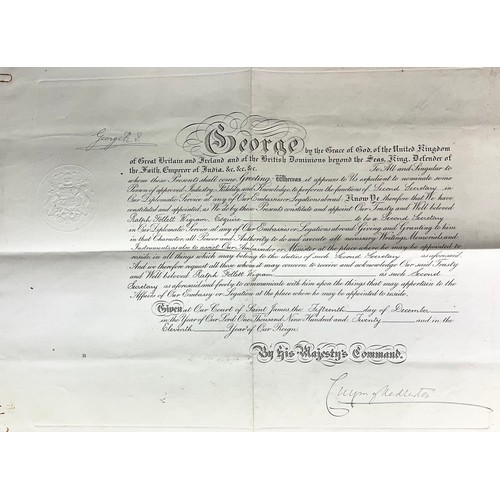 George R. I.
George by the Grace of God, of the United Kingdom
of Great Britain and Ireland and of the British Dominions beyond the Seas, King, Defender of
the Faith, Emperor of India, &c. &c. &c. To All and Singular to
whom these Presents shall come, Greeting. Whereas it appears to Us expedient to nominate some
Person of approved Industry, Fidelity, and Knowledge, to perform the functions of Second Secretary in
Our Diplomatic Service at any of Our Embassies or Legations abroad: Know Ye, therefore that We have
constituted and appointed, as We do by these Presents constitute and appoint Our Trusty and Well beloved
Ralph Follett Wigram, Esquire to be a Second Secretary
in Our Diplomatic Service at any of Our Embassies or Legations abroad. Giving and Granting to him
in that Character, all Power and Authority to do and execute all necessary Writings, Memorials and
Instruments, as also to assist Our Ambassador or Minister at the place where he may be appointed to
reside in all things which may belong to the duties of such Second Secretary as aforesaid.
And we therefore request all those whom it may concern to receive and acknowledge Our said Trusty
and Well beloved Ralph Follett Wigram as such Second
Secretary as aforesaid and freely to communicate with him upon the things that may appertain to the
Affairs of Our Embassy or Legation at the place where he may be appointed to reside.
Given at Our Court of Saint James, the Fifteenth day of December
in the Year of Our Lord, One Thousand Nine Hundred and Twenty and in the
Eleventh Year of Our Reign.
By His Majesty's Command.
Curzon of Kedleston